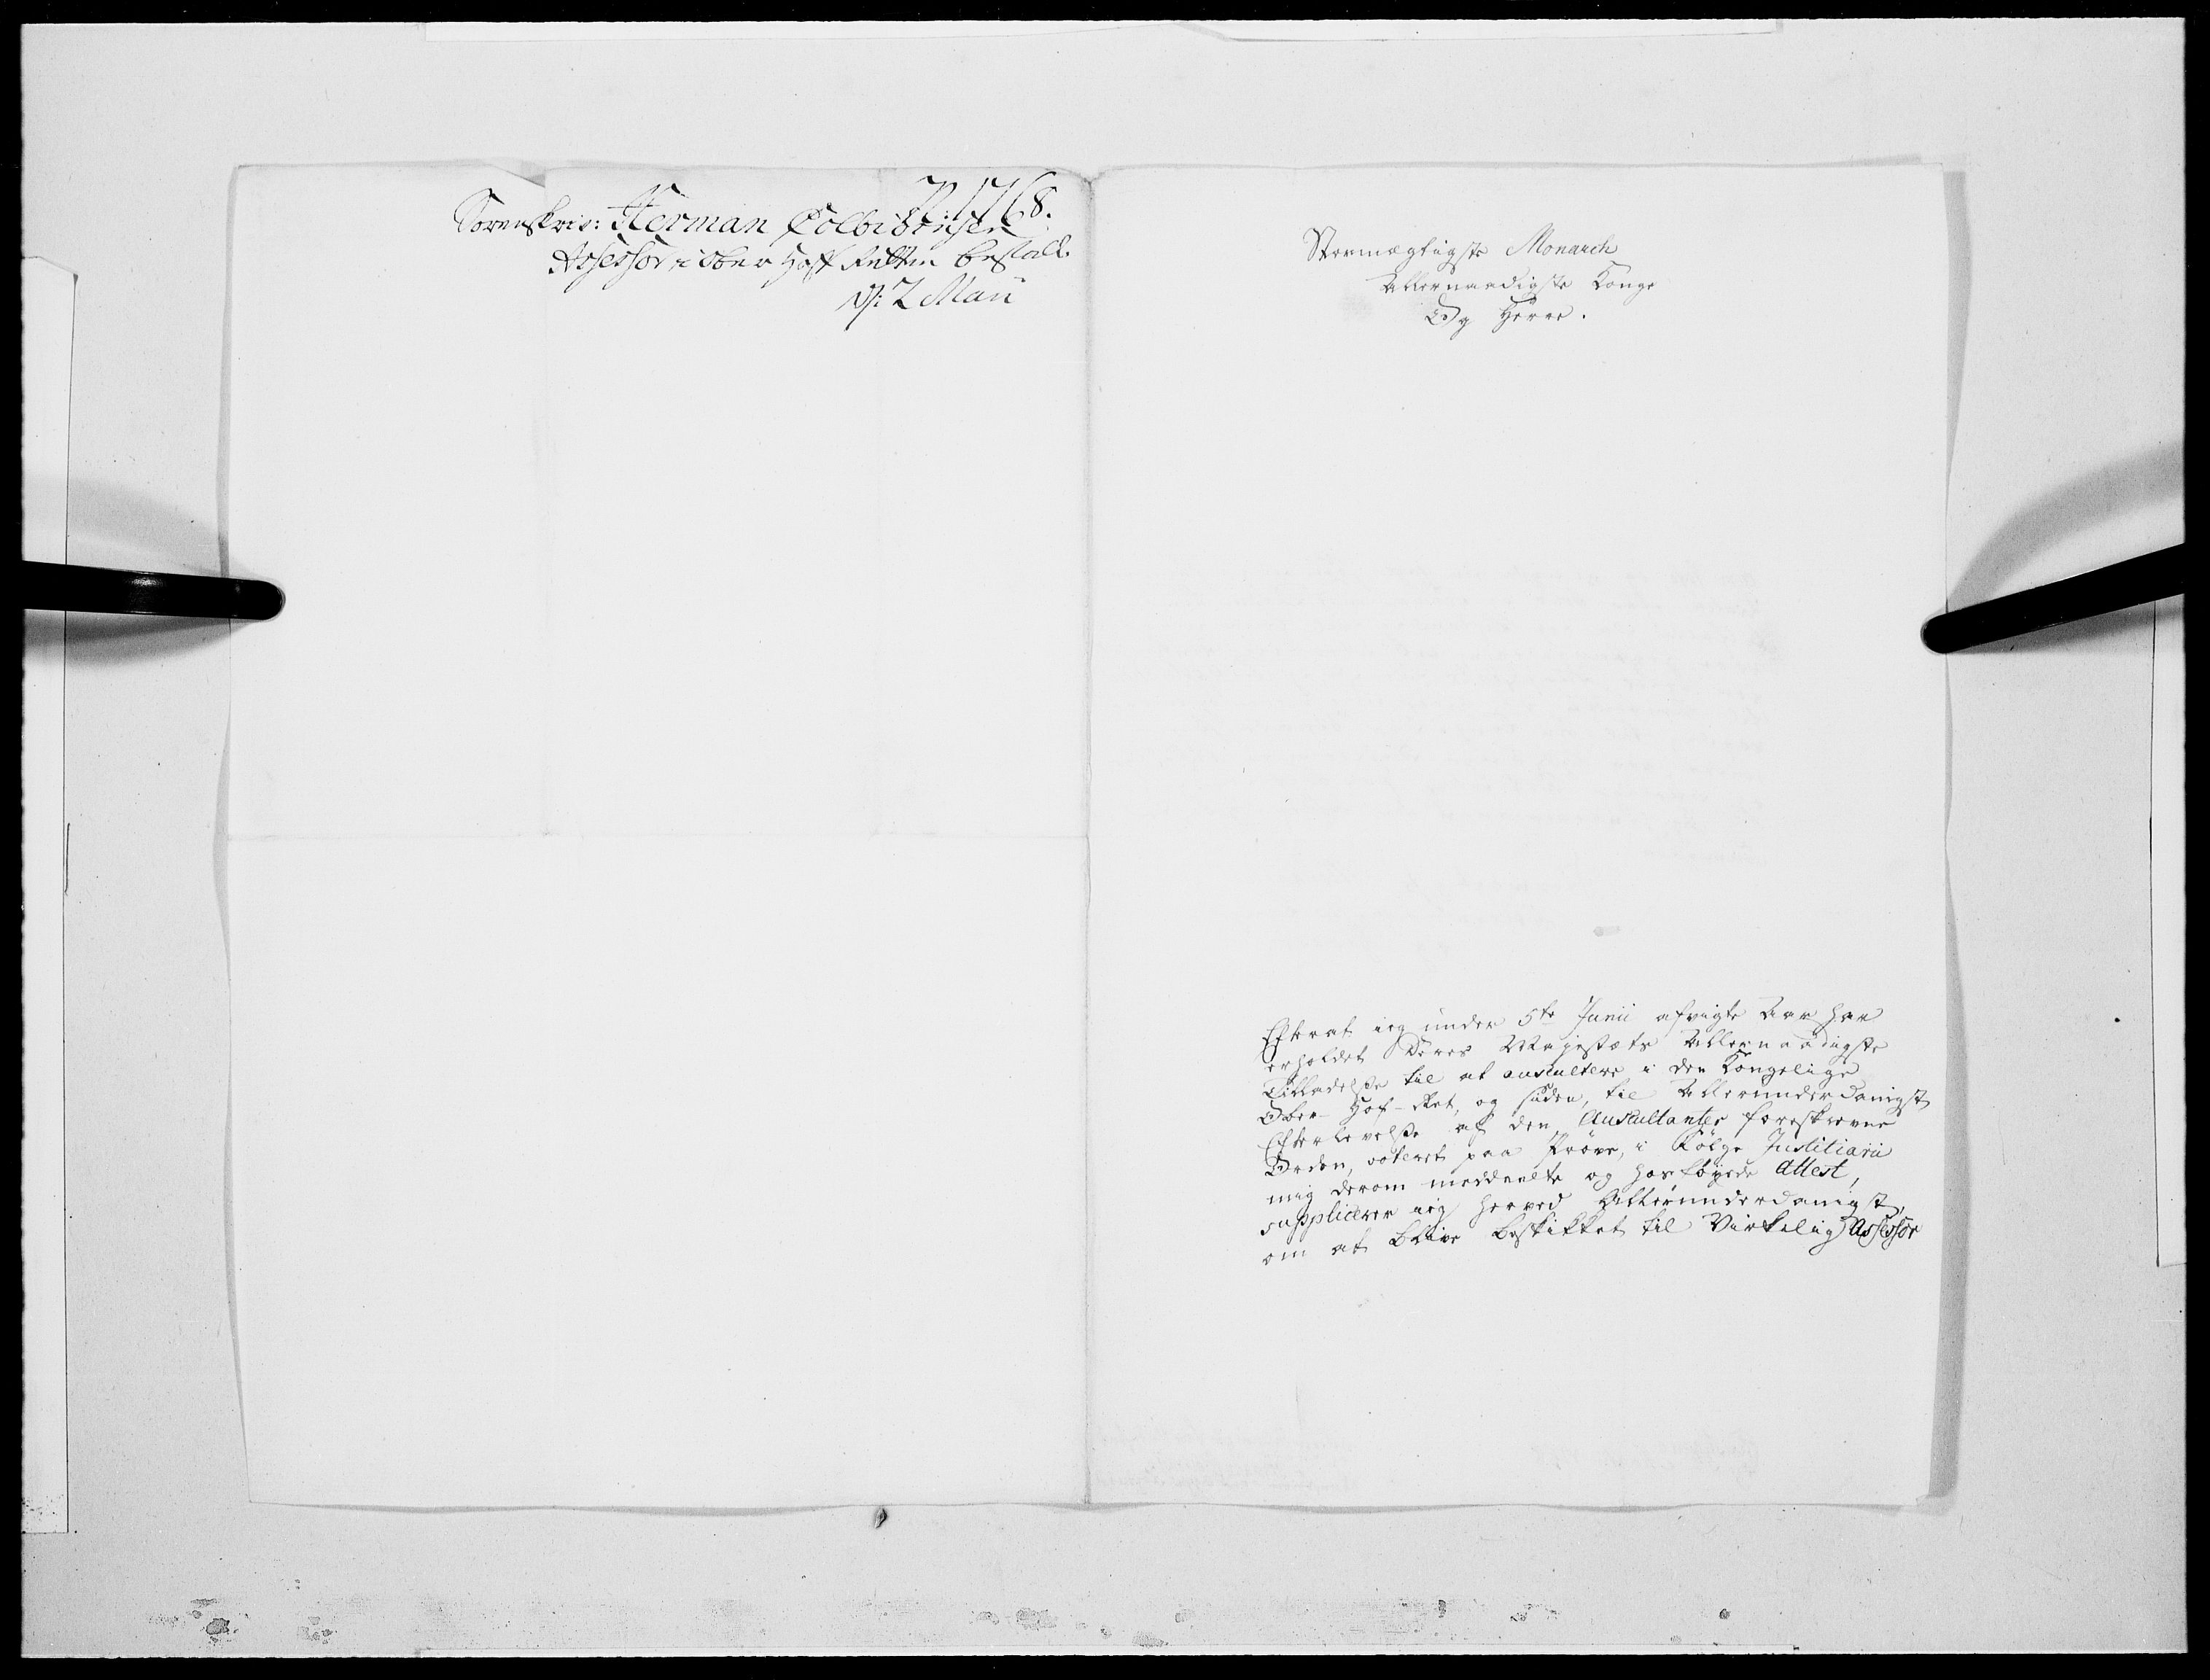 P: 1768.
Sorenskriv: Herman Colbiörnsen
Assessor i Ober Hoff Retten bestalt.
d: 2 Maii
Stormægtigste Monarch
Allernaadigste Konge
Og Herre.
Efterat ieg under 5te Junii afvigte Aar har
erholdet Deres Majestæts Allernaadigste
Tilladelse til at auscultere i den Kongelige
Ober-Hof-Ret, og siden, til Allerunderdanigst
Efterlevelse af den Auscultanter foreskrevne
Orden, voteret paa Prøve, i Følge Justitiarii
mig derom meddeelte og hosføyede Attest,
supplicerer ieg herved Allerunderdanigst,
om at blive beskikket til Virkelig Assessor